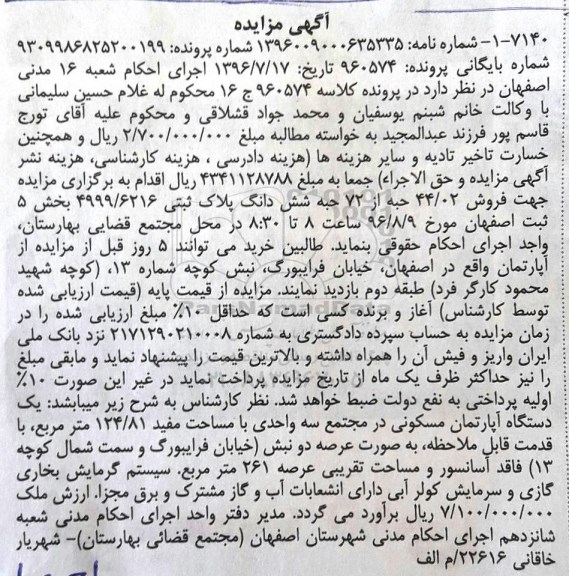 آگهی مزایده
۷۱۴۰-۱- شماره نامه: ۱۳۹۶۰۰۹۰۰۰۶۳۵۳۳۵ شماره پرونده: ۹۳۰۹۹۸۶۸۲۵۲۰۰۱۹۹
شماره بایگانی پرونده: ۹۶۰۵۷۴ تاریخ: ۱۳۹۶/۷/۱۷ اجرای احکام شعبه ۱۶ مدنی
اصفهان در نظر دارد در پرونده کلاسه ۹۶۰۵۷۴ ج ۱۶ محکوم له غلام حسین سلیمانی
با وکالت خانم شبنم یوسفیان و محمد جواد قشلاقی و محکوم علیه آقای تورج
قاسم پور فرزند عبدالمجید به خواسته مطالبه مبلغ ۲/۷۰۰/۰۰۰/۰۰۰ ریال و همچنین
خسارت تاخیر تادیه و سایر هزینه ها (هزینه دادرسی ، هزینه کارشناسی، هزینه نشر
آگهی مزایده و حق الاجراء) جمعا به مبلغ ۴۳۴۱۱۲۸۷۸۸ ریال اقدام به برگزاری مزایده
جهت فروش ۴۴/۰۲ حبه از ۷۲ حبه شش دانگ پلاک ثبتی ۴۹۹۹/۶۲۱۶ بخش ۵
ثبت اصفهان مورخ ۹۶/۸/۹ ساعت ۸ تا ۸:۳۰ در محل مجتمع قضایی بهارستان،
واجد اجرای احکام حقوقی بنماید. طالبین خرید می توانند ۵ روز قبل از مزایده از
آپارتمان واقع در اصفهان، خیابان فرایبورگ، نبش کوچه شماره ۱۳، (کوچه شهید
محمود کارگر فرد) طبقه دوم بازدید نمایند. مزایده از قیمت پایه (قیمت ارزیابی شده
توسط کارشناس) آغاز و برنده کسی است که حداقل ۱۰٪ مبلغ ارزیابی شده را در
زمان مزایده به حساب سپرده دادگستری به شماره ۲۱۷۱۲۹۰۲۱۰۰۰۸ نزد بانک ملی
ایران واریز و فیش آن را همراه داشته و بالاترین قیمت را پیشنهاد نماید و مابقی مبلغ
را نیز حداکثر ظرف یک ماه از تاریخ مزایده پرداخت نماید در غیر این صورت ۱۰٪
اولیه پرداختی به نفع دولت ضبط خواهد شد. نظر کارشناس به شرح زیر میباشد: یک
دستگاه آپارتمان مسکونی در مجتمع سه واحدی با مساحت مفید ۱۲۴/۸۱ متر مربع، با
قدمت قابل ملاحظه، به صورت عرصه دو نبش (خیابان فرایبورگ و سمت شمال کوچه
۱۳) فاقد آسانسور و مساحت تقریبی عرصه ۲۶۱ متر مربع. سیستم گرمایش بخاری
گازی و سرمایش کولر آبی دارای انشعابات آب و گاز مشترک و برق مجزا. ارزش ملک
۷/۱۰۰/۰۰۰/۰۰۰ ریال برآورد می گردد. مدیر دفتر واحد اجرای احکام مدنی شعبه
شانزدهم اجرای احکام مدنی شهرستان اصفهان (مجتمع قضائی بهارستان)- شهریار
خاقانی ۲۲۶۱۶/م الف